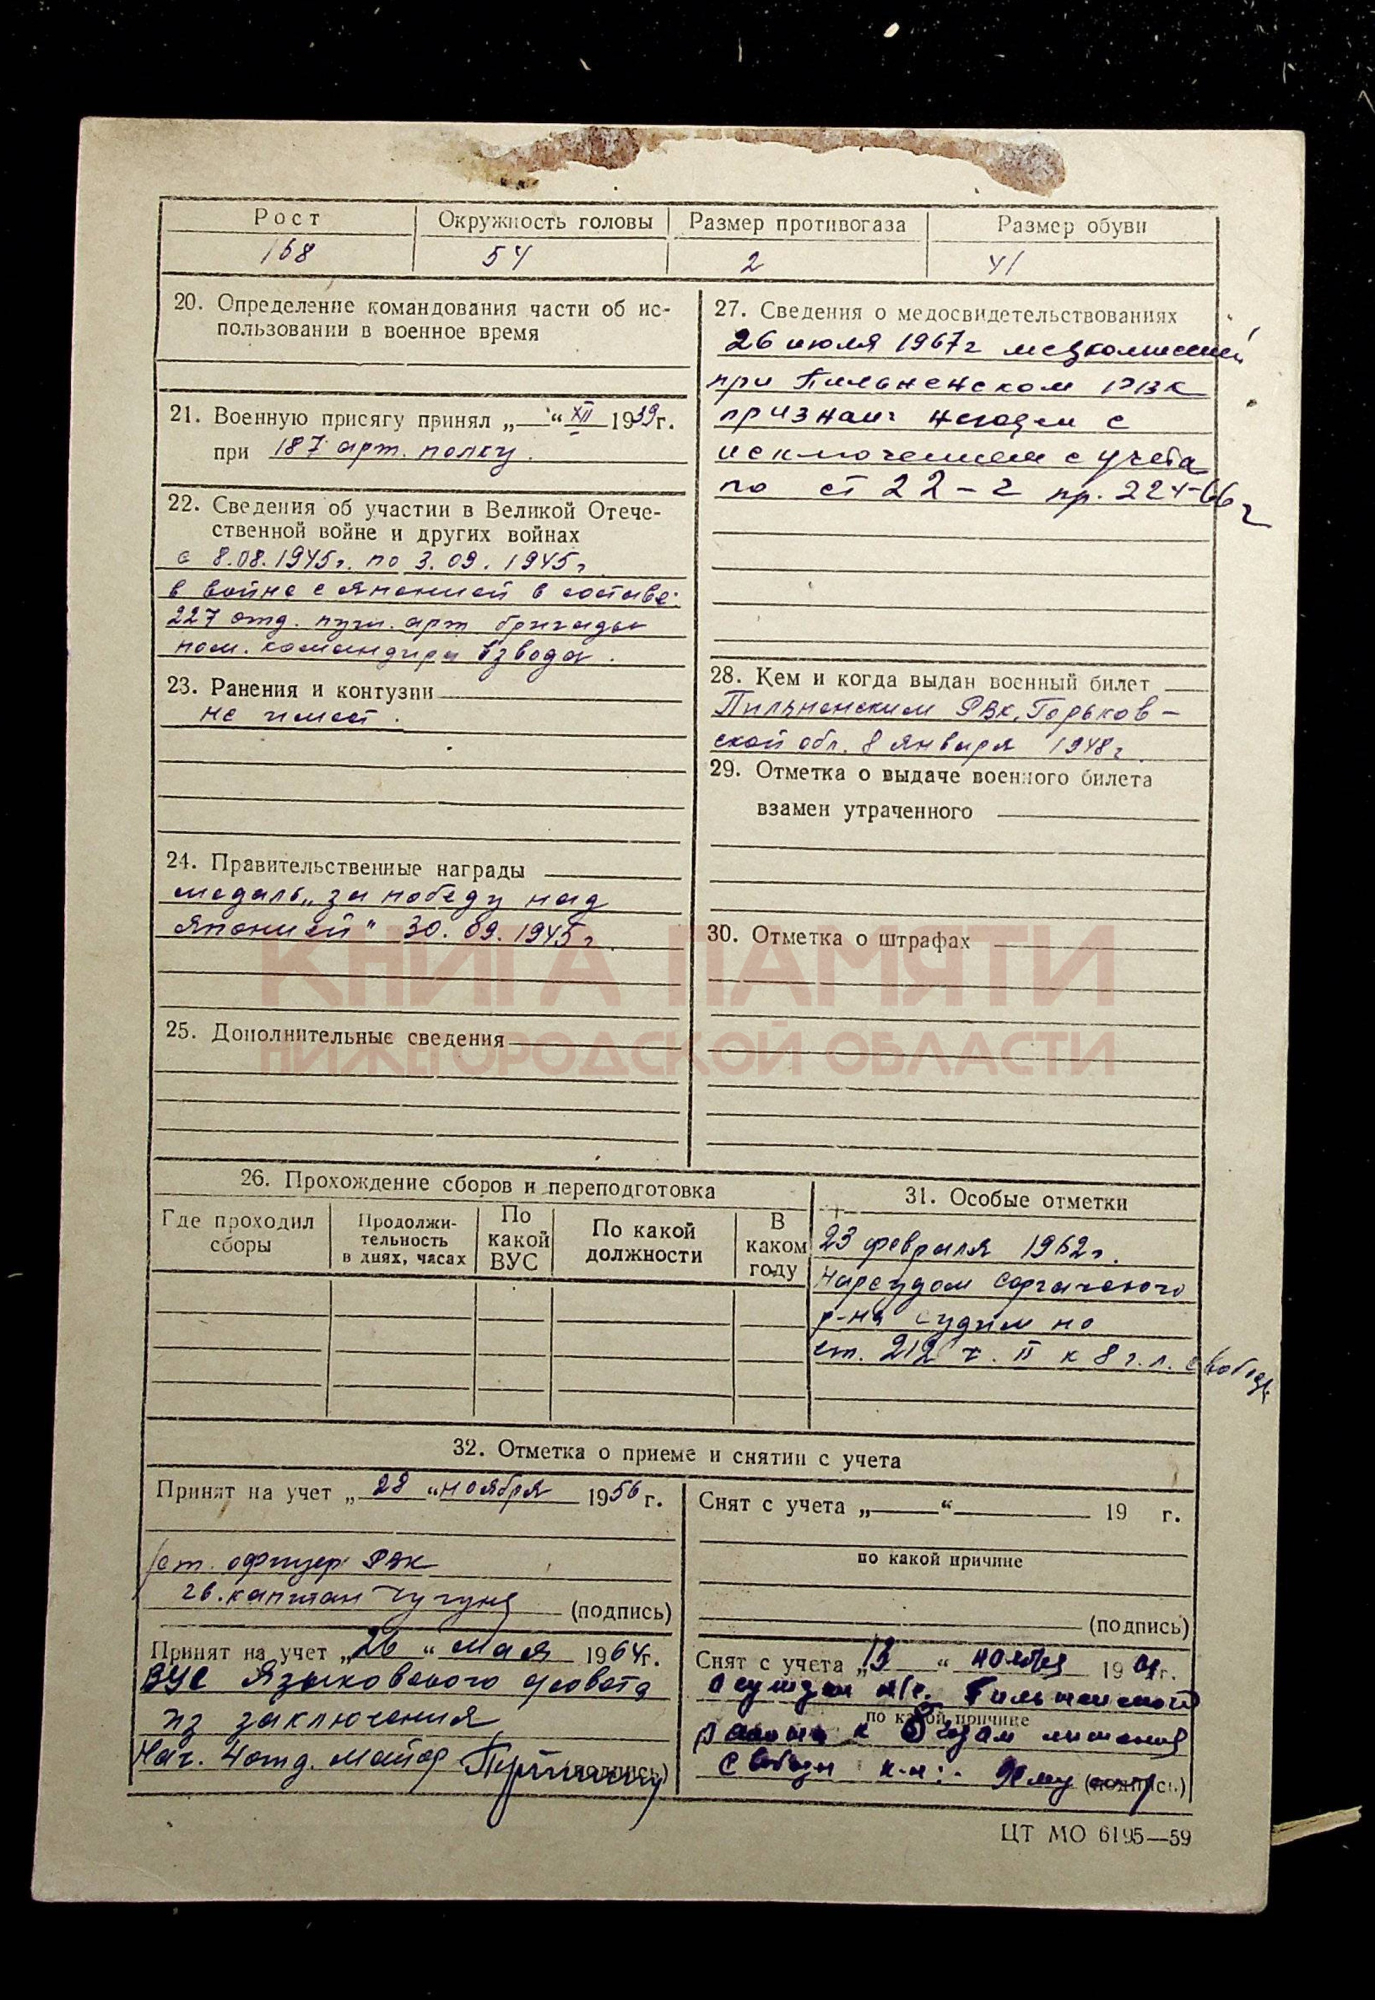 Рост Окружность головы Размер противогаза Размер обуви
168 54 2 41
20. Определение командования части об ис-
пользовании в военное время
21. Военную присягу принял „ “ XII 1939г.
при 187 арт. полку.
22. Сведения об участии в Великой Отече-
ственной войне и других войнах
с 8.08.1945г. по 3.09.1945г
в войне с Японией в составе:
227 отд. пуш. арт бригады
пом. командира взвода.
23. Ранения и контузии
не имеет.
24. Правительственные награды
медаль „за победу над
Японией" 30.09.1945г.
25. Дополнительные сведения
27. Сведения о медосвидетельствованиях
26 июля 1967г медкомиссией
при Пильненском РВК
признан негоден с
исключением с учета
по ст 22-г пр. 224-66г
28. Кем и когда выдан военный билет
Пильненским РВК, Горьков-
ской обл. 8 января 1948г.
29. Отметка о выдаче военного билета
взамен утраченного
30. Отметка о штрафах
КНИГА ПАМЯТИ
НИЖЕГОРОДСКОЙ ОБЛАСТИ
26. Прохождение сборов и переподготовка
Где проходил сборы Продолжи-тельность в днях, часах По какой ВУС По какой должности В каком году
31. Особые отметки
23 февраля 1962г.
Нарсудом Сергачского
р-на судим по
ст. 212 ч. II к 8 г. л. свободы
32. Отметка о приеме и снятии с учета
Принят на учет „28 “ ноября 1956 г.
ст. офицер РВК
гв. капитан
(подпись)
Принят на учет „26 “ мая 1964г.
ВУС Языковского с/совета
из заключения
Нач. 4 отд. майор
(подпись)
Снят с учета „ “ 19 г.
по какой причине
(подпись)
Снят с учета „13 “ ноября 19 г.
осужден н/с. Пильненского
по какой причине
района к 8 годам лишения
свободы
(подпись)
ЦТ МО 6195—59